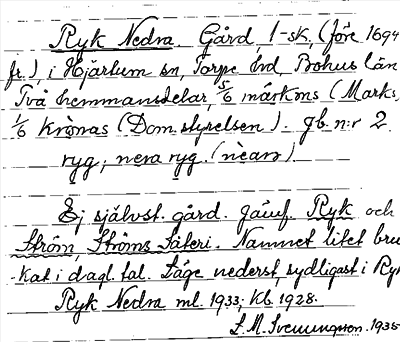 Ryk Nedra. Gård, 1-sk, (före 1694
fr.), i Hjärtum sn, Torpe hd, Bohus län
Två hemmansdelar, 5/6 märkens (Marks.
1/6 Krönas (Domstyrelsen). gb. n:r 2.
ryg; nera ryg. (nèars)
Ej självst. gård. jämf. Ryk och
Ström, Ströms Säteri. Namnet litet bru
-kat i dagl. tal. Läge nederst, sydligast i Ryk
Ryk Nedra ml. 1933; Kb. 1928.
L. M. Svenungsson. 1935